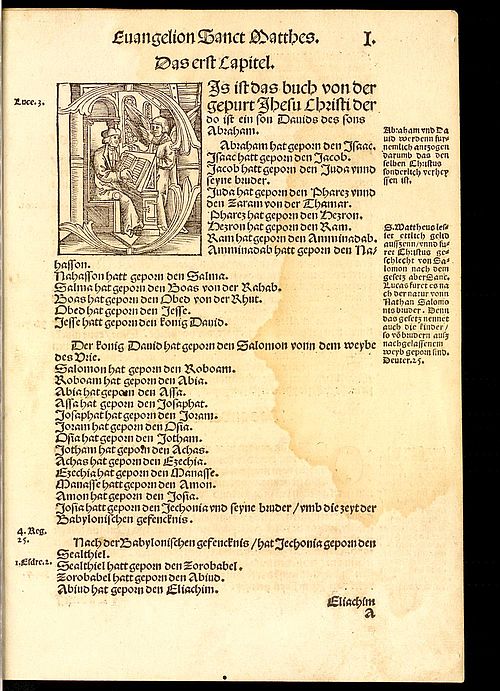 Euangelion Sanct Matthes. I.
Das erst Capitel.
Luce. 3.
Is ist das buch von der
gepurt Jhesu Christi der
do ist ein son Dauids des sons
Abraham.
Abraham hat geporn den Isaac.
Isaac hatt geporn den Jacob.
Jacob hatt geporn den Juda vnnd
seyne bruder.
Juda hat geporn den Pharez vnnd
den Zaram von der Thamar.
Pharez hat geporn den Hezron.
Hezron hat geporn den Ram.
Ram hat geporn den Amminadab.
Amminadab hatt geporn den Na-
hasson.
Nahasson hatt geporn den Salma.
Salma hat geporn den Boas von der Rahab.
Boas hat geporn den Obed von der Rhut.
Obed hat geporn den Jesse.
Jesse hatt geporn den konig Dauid.
Der konig Dauid hat geporn den Salomon vonn dem weybe
des Vrie.
Salomon hat geporn den Roboam.
Roboam hat geporn den Abia.
Abia hat geporn den Assa.
Assa hat geporn den Josaphat.
Josaphat hat geporn den Joram.
Joram hat geporn den Osia.
Osia hat geporn den Jotham.
Jotham hat geporn den Achas.
Achas hat geporn den Ezechia.
Ezechia hat geporn den Manasse.
Manasse hatt geporn den Amon.
Amon hat geporn den Josia.
Josia hatt geporn den Jechonia vnd seyne bruder / vmb die zeyt der
Babylonischen gefencknis.
4. Reg.
25.
Nach der Babylonischen gefencknis / hat Jechonia geporn den
Sealthiel.
1. Esdre. 2.
Sealthiel hatt geporn den Zorobabel.
Zorobabel hatt geporn den Abiud.
Abiud hat geporn den Eliachim.
Eliachim
A
Abraham vnd Da
uid werdenn fur-
nemlich antzogen
darumb das den
selben Christus
sonderlich verhey
ssen ist.
S. Mattheus les-
set ettlich gelid
aussenn / vnnd fu-
ret Christus ge-
schlecht von Sa-
lomon nach dem
gesetz aber Sanc.
Lucas furet es na
ch der natur vonn
Nathan Salomo
nis bruder. Denn
das gesetz nennet
auch die kinder /
so vō brudern ausz
nachgelassenem
weyb geporn sind.
Deuter. 25.